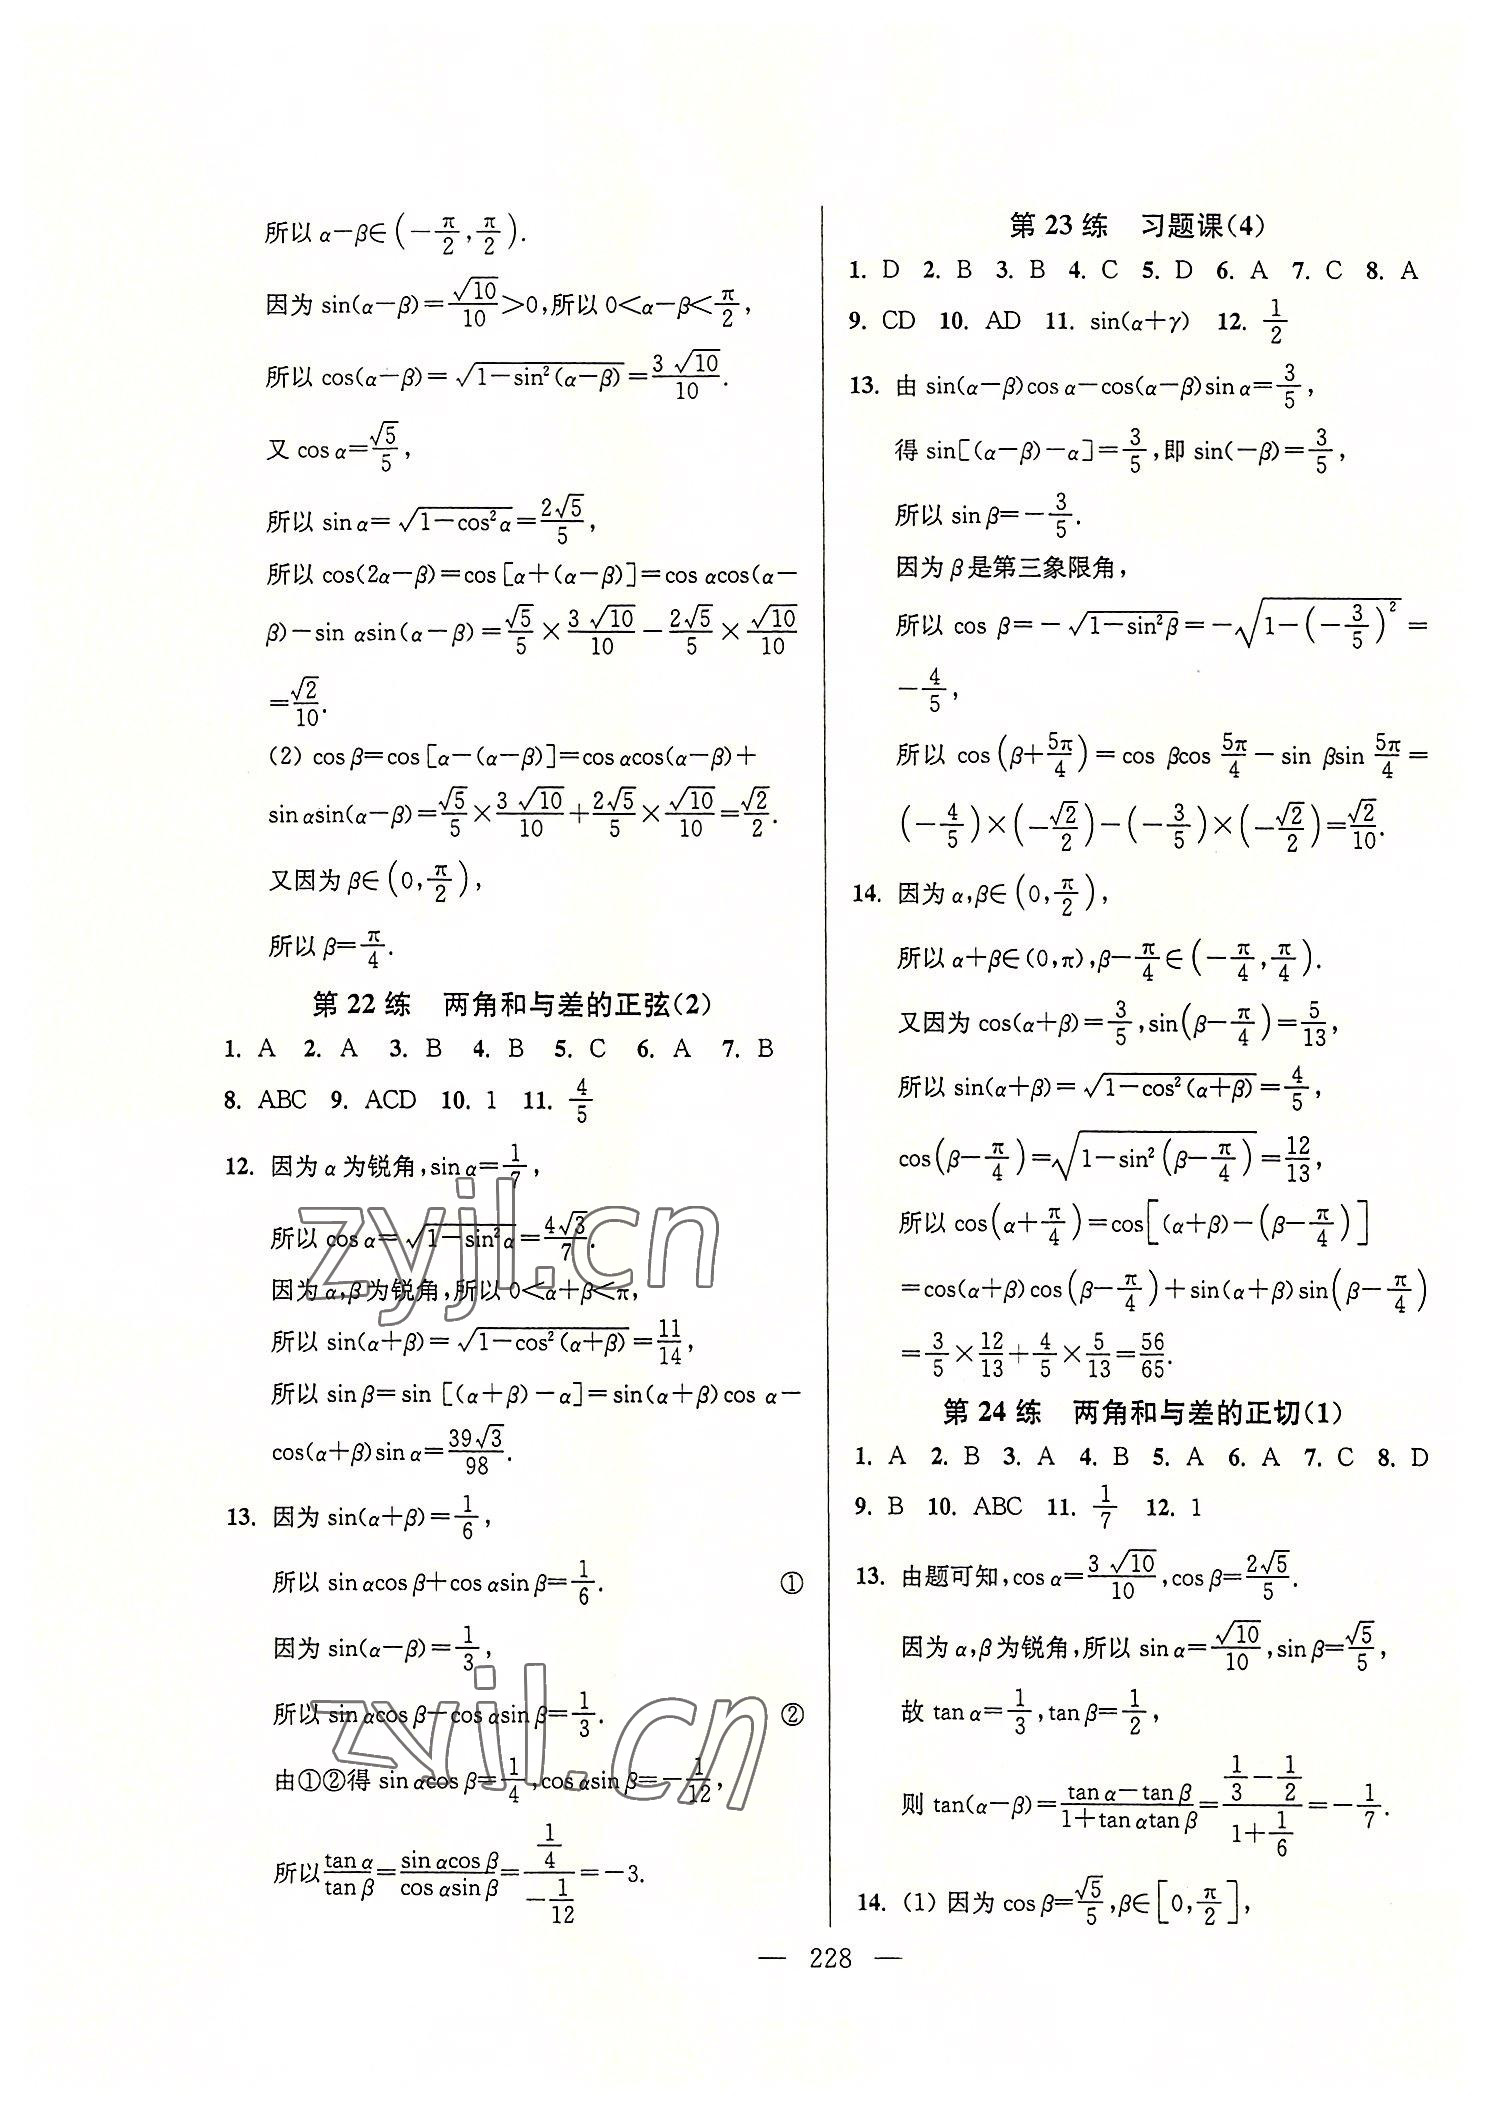 所以 α－β∈(－π/2,π/2).
因为 sin(α－β)＝√10/10＞0,所以 0＜α－β＜π/2,
所以 cos(α－β)＝√(1－sin²(α－β))＝3√10/10.
又 cos α＝√5/5,
所以 sin α＝√(1－cos²α)＝2√5/5,
所以 cos(2α－β)＝cos[α＋(α－β)]＝cos αcos(α－
β)－sin αsin(α－β)＝√5/5×3√10/10－2√5/5×√10/10
＝√2/10.
(2) cos β＝cos[α－(α－β)]＝cos αcos(α－β)＋
sin αsin(α－β)＝√5/5×3√10/10＋2√5/5×√10/10＝√2/2.
又因为 β∈(0,π/2),
所以 β＝π/4.
第 22 练 两角和与差的正弦(2)
1. A 2. A 3. B 4. B 5. C 6. A 7. B
8. ABC 9. ACD 10. 1 11. 4/5
12. 因为 α 为锐角,sin α＝1/7,
所以 cos α＝√(1－sin²α)＝4√3/7.
因为 α,β 为锐角,所以 0＜α＋β＜π,
所以 sin(α＋β)＝√(1－cos²(α＋β))＝11/14,
所以 sin β＝sin [(α＋β)－α]＝sin(α＋β)cos α－
cos(α＋β)sin α＝39√3/98.
13. 因为 sin(α＋β)＝1/6,
所以 sin αcos β＋cos αsin β＝1/6. ①
因为 sin(α－β)＝1/3,
所以 sin αcos β－cos αsin β＝1/3. ②
由①②得 sin αcos β＝1/4,cos αsin β＝－1/12,
所以 tan α/tan β＝sin αcos β/cos αsin β＝(1/4)/(－1/12)＝－3.
第 23 练 习题课(4)
1. D 2. B 3. B 4. C 5. D 6. A 7. C 8. A
9. CD 10. AD 11. sin(α＋γ) 12. 1/2
13. 由 sin(α－β)cos α－cos(α－β)sin α＝3/5,
得 sin[(α－β)－α]＝3/5,即 sin(－β)＝3/5,
所以 sin β＝－3/5.
因为 β 是第三象限角,
所以 cos β＝－√(1－sin²β)＝－√(1－(－3/5)²)＝
－4/5,
所以 cos(β＋5π/4)＝cos βcos 5π/4－sin βsin 5π/4＝
(－4/5)×(－√2/2)－(－3/5)×(－√2/2)＝√2/10.
14. 因为 α,β∈(0,π/2),
所以 α＋β∈(0,π),β－π/4∈(－π/4,π/4).
又因为 cos(α＋β)＝3/5,sin(β－π/4)＝5/13,
所以 sin(α＋β)＝√(1－cos²(α＋β))＝4/5,
cos(β－π/4)＝√(1－sin²(β－π/4))＝12/13,
所以 cos(α＋π/4)＝cos[(α＋β)－(β－π/4)]
＝cos(α＋β)cos(β－π/4)＋sin(α＋β)sin(β－π/4)
＝3/5×12/13＋4/5×5/13＝56/65.
第 24 练 两角和与差的正切(1)
1. A 2. B 3. A 4. B 5. A 6. A 7. C 8. D
9. B 10. ABC 11. 1/7 12. 1
13. 由题可知,cos α＝3√10/10,cos β＝2√5/5.
因为 α,β 为锐角,所以 sin α＝√10/10,sin β＝√5/5,
故 tan α＝1/3,tan β＝1/2,
则 tan(α－β)＝(tan α－tan β)/(1＋tan αtan β)＝(1/3－1/2)/(1＋1/6)＝－1/7.
14. (1) 因为 cos β＝√5/5,β∈[0,π/2],
— 228 —
zyjl.cn
zyjl.cn